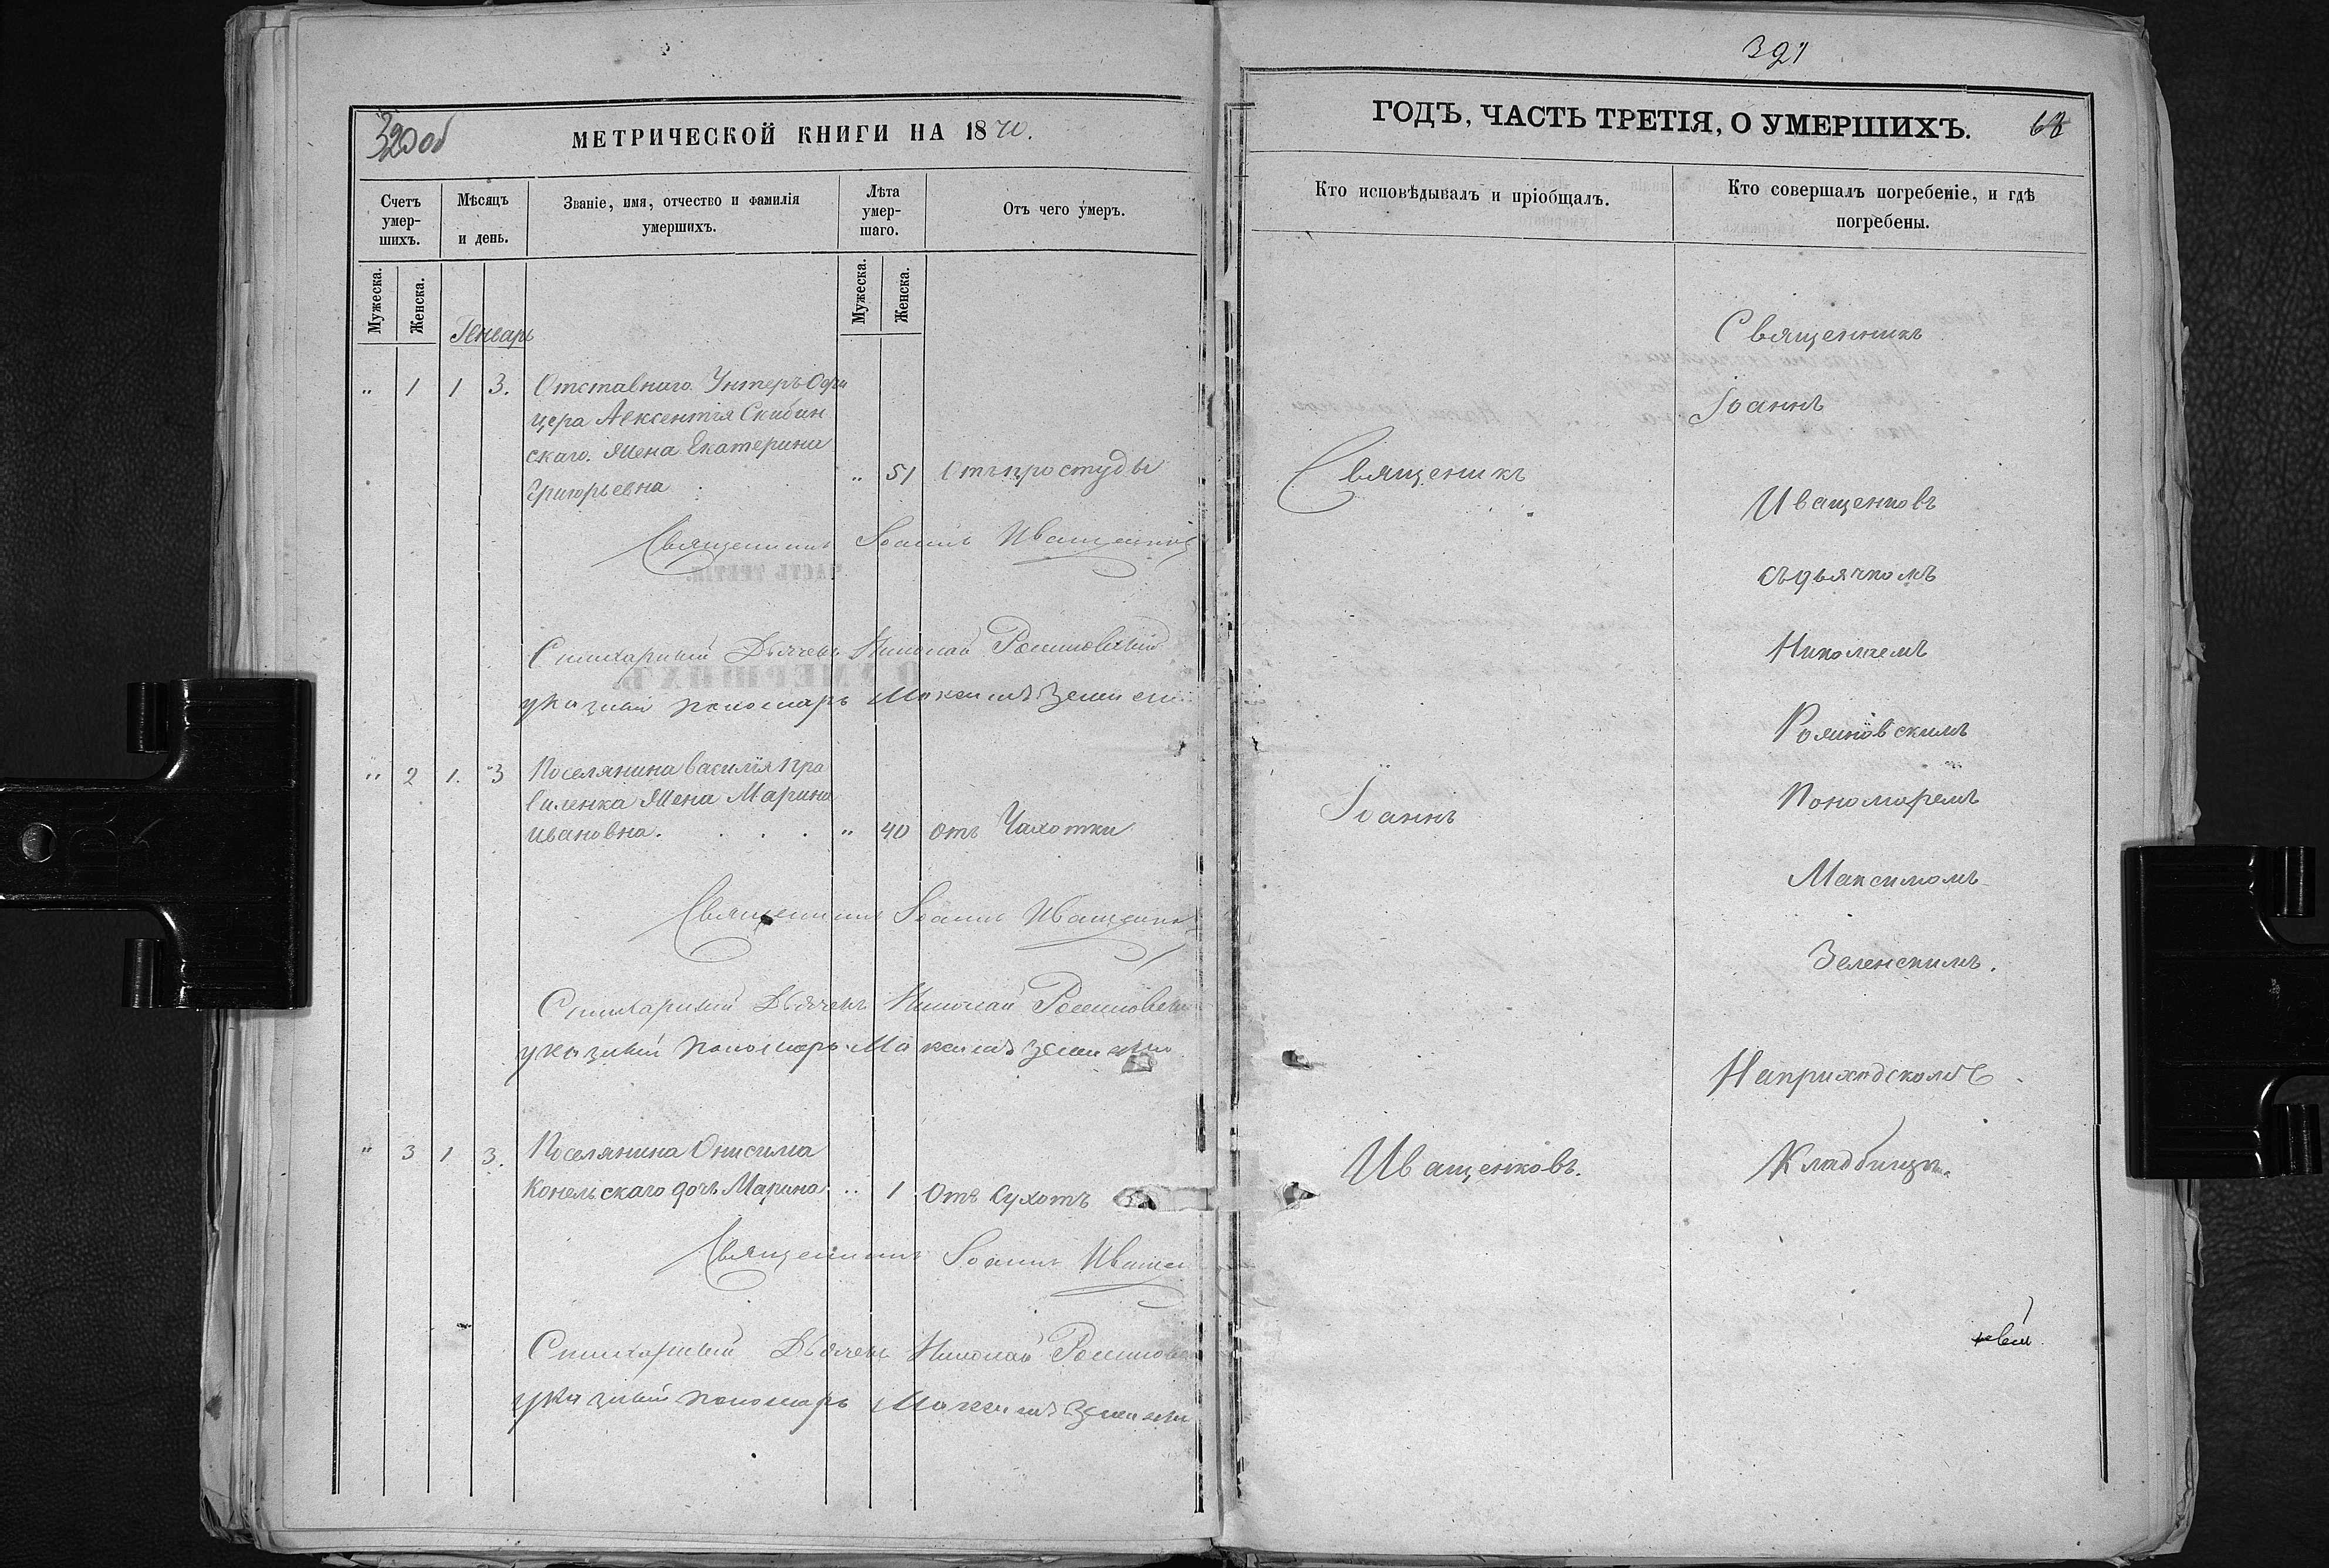 320об
МЕТРИЧЕСКОЙ КНИГИ НА 1870.
Счетъ умер-шихъ.
Мѣсяцъ и день.
Званіе, имя, отчество и фамилія умершихъ.
Лѣта умер-шаго.
Отъ чего умеръ.
Мужеска.
Женска.
Мужеска.
Женска.
Генварь
" 1 1 3. Отставнаго Унтеръ Офи
цера Авксентія Скибин
скаго. жена Екатерина
Григорьевна " 51 Отъ простуды
Священникъ Іоаннъ Иващенков
Стихарный Дьячекъ Николай Рошновский
указный пономарь Максимъ Зеленски
" 2 1. 3 Поселянина Василія Кра
виленка жена Марина
Ивановна. . . . . " 40 отъ Чахотки
Священникъ Іоаннъ Иващенко
Стихарный Дьячекъ Николай
указный пономарь Максимъ Зеленски
" 3 1 3. Поселянина Онисима
Конельскаго дочь Марина .. 1 Отъ Сухотъ
Священникъ Іоаннъ Иващен
Стихарный Дьячекъ Николай
указный пономарь Максимъ Зеленски
321
ГОДЪ, ЧАСТЬ ТРЕТІЯ, О УМЕРШИХЪ.
Кто исповѣдывалъ и пріобщалъ.
Кто совершалъ погребеніе, и гдѣ погребены.
Священикъ
Іоаннъ
Иващенковъ.
Священникъ
Іоаннъ
Иващенковъ
съ дьячкомъ
Николаемъ
Пономаремъ
Максимомъ
Зеленскимъ.
На приходскомъ
Кладбищѣ.